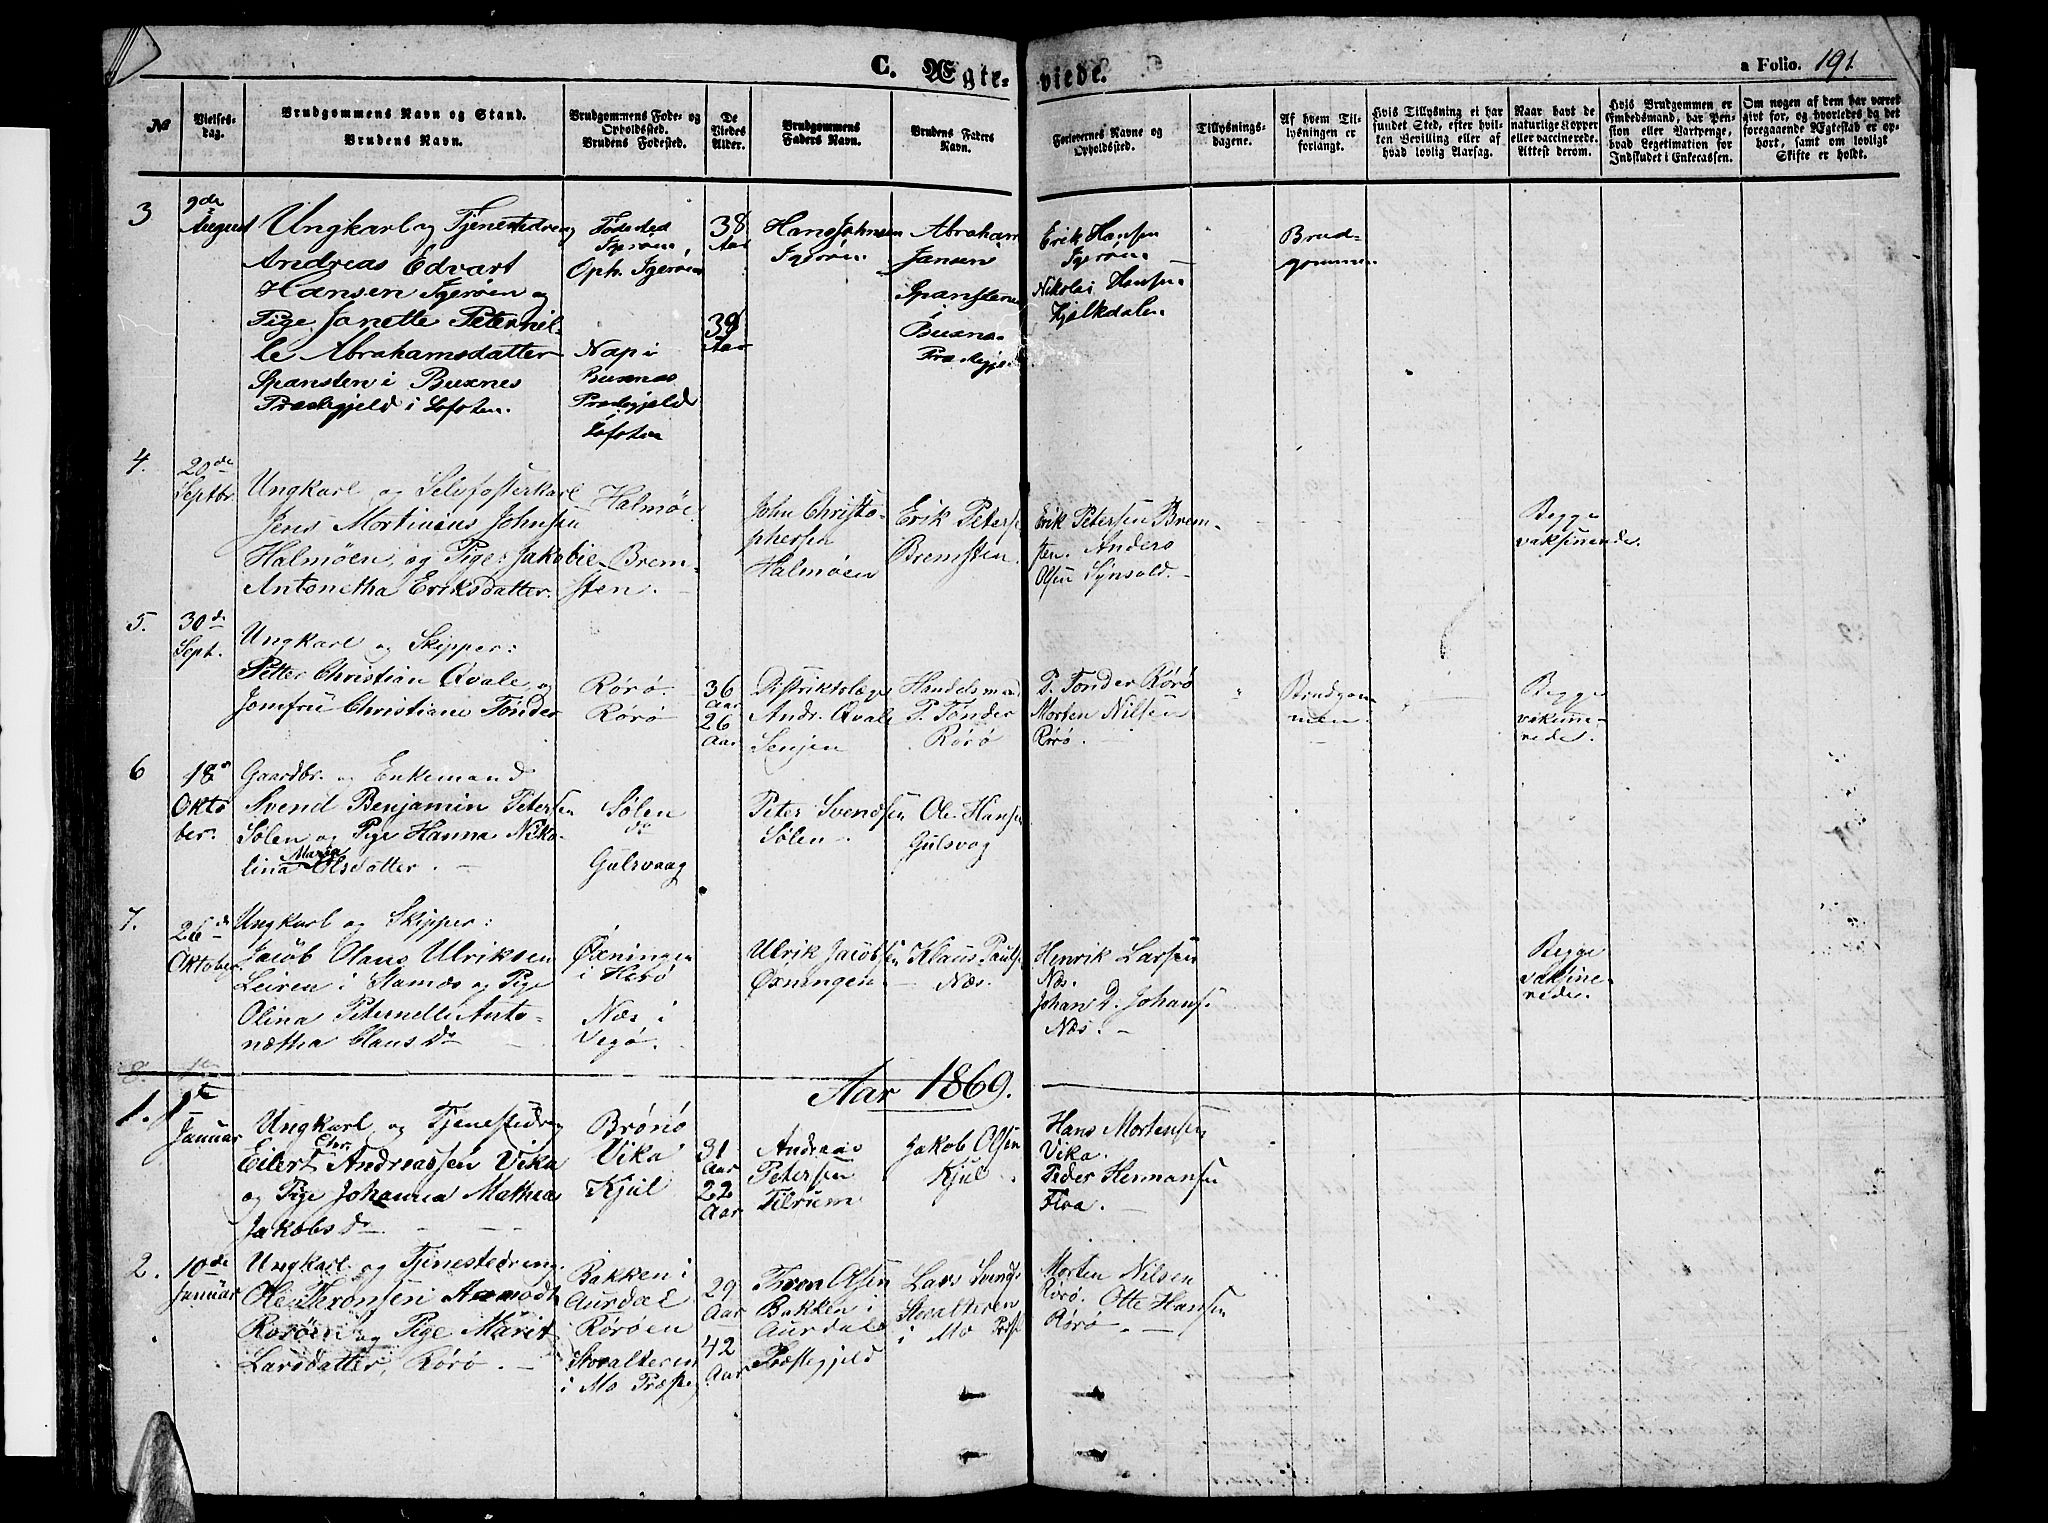 C. Ægte-viede.
a Folio. 191.
No
Vielses-dag.
Brudgommens Navn og Stand.
Brudens Navn.
Brudgommens Føde- og
Opholdssted.
Brudens Fødested.
De
Viedes
Alder.
Brudgommens
Faders Navn.
Brudens Faders
Navn.
Forlovernes Navne og
Opholdssted.
Tillysnings-
dagene.
Af hvem Til-
lysningen er
forlangt.
Hvis Tillysning ei har
fundet Sted, efter hvil-
ken Bevilling eller af
hvad lovlig Aarsag.
Naar havt de
naturlige Kopper
eller vaccinerede.
Attest derom.
Hvis Brudgommen er
Embedsmand, har Pen-
sion eller Vartpenge,
hvad Legitimation for
Indskudet i Enkecassen.
Om nogen af dem har været
givt for, og hvorledes da det
foregaaende Ægteskab er op-
hørt, samt om lovligt
Skifte er holdt.
3
9de
August
Ungkarl og Tjenestedreng
Andreas Edvart
Hansen Igerøen og
Pige Janette Peternil-
le Abrahamsdatter
Spansten i Buxnes
Præstegjeld i Lofoten.
Fødested
Igerøen,
Oph. Igerøen
Nap i
Buxnæs
Præstegjeld
Lofoten
38
Aar
38
Aar
Hans Johnsen
Igerøen
Abraham
Jansen
Spansten
i
Buxnæs
Præstegje
Erik Hansen
Igerøen
Nikolai Hansen
Hjelkdalen
Brud-
gommen
4.
20de
Septbr.
Ungkarl og Selvfosterkarl
Jens Mortinius Johnsen
Halmøen, og Pige: Jakobie
Antonetha Eriksdatter.
Halmøe.
Brem-
sten.
John Christo-
phersen
Halmøen
Erik Peters
Bremsten.
Erik Petersen Brem-
sten. Anders
Olsen Synsold.
Begge
vaksinerede.
5.
30de
Sept.
Ungkarl og Skipper:
Petter Christian Qvale, og
Jomfru Christiane Tønder
Rørø.
Rørø
36
Aar
26
Aar
Distriktslæge
Andr. Qvale
Senjen
Handelsmand
P. Tønder
Rørø
P. Tønder Rørø
Morten Nilsen
Rørø.
"
Brudgom-
men.
Begge
vaksine-
rede.
6
18de
Okto
ber.
Gaardbr. og Enkemand
Svend Benjamin Petersen
Sølen og Pige Hanna Niko-
lina Maria Olsdatter.
Sølen
do
Gulsvaag
Peter Svendsen
Sølen
Ole Hansen
Gulsvog
7.
26de
Oktober.
Ungkarl og Skipper:
Jacob Olaus Ulriksen
Leiren i Stamnæs og Pige
Olina Peternelle Anto-
nætha Clausdr
Øxningen
i Herø
Næs i
Vegø.
Ulrik Jacobsen
Øxningen.
Klaus Pauls
Næs.
Henrik Larsen
Næs.
Johan D. Johans.
Næs.
Begge
vaksine-
rede.
8. 1te
Aar 1869.
1.
1te
Januar
Ungkarl og Tjenestedreng
Eilert Chr. Andreassen Vika
og Pige Johanna Mathea
Jakobsdr
Brønø
Vika
Kjul
31
Aar
22
Aar
Andreas
Petersen
Tilrum
Jakob Olsen
Kjul
Hans Mortensen
Vika.
Peder Hermansen
Floa.
2.
10de
Januar
Ungkarl og Tjenestedreng
Ole Thronsen Aamodt
Rørøen og Pige Marit
Larsdatter, Rørø.
Bakken i
Aurdal
Rørøen
Storalteren
i Mo Præste
29
Aar
42
Aar
Tron Olsen
Bakken i
Aurdals
Præstegjeld
Lars Svends
Storalteren
i Mo Præst
Morten Nilsen
Rørø. Otte Hansen
Rørø